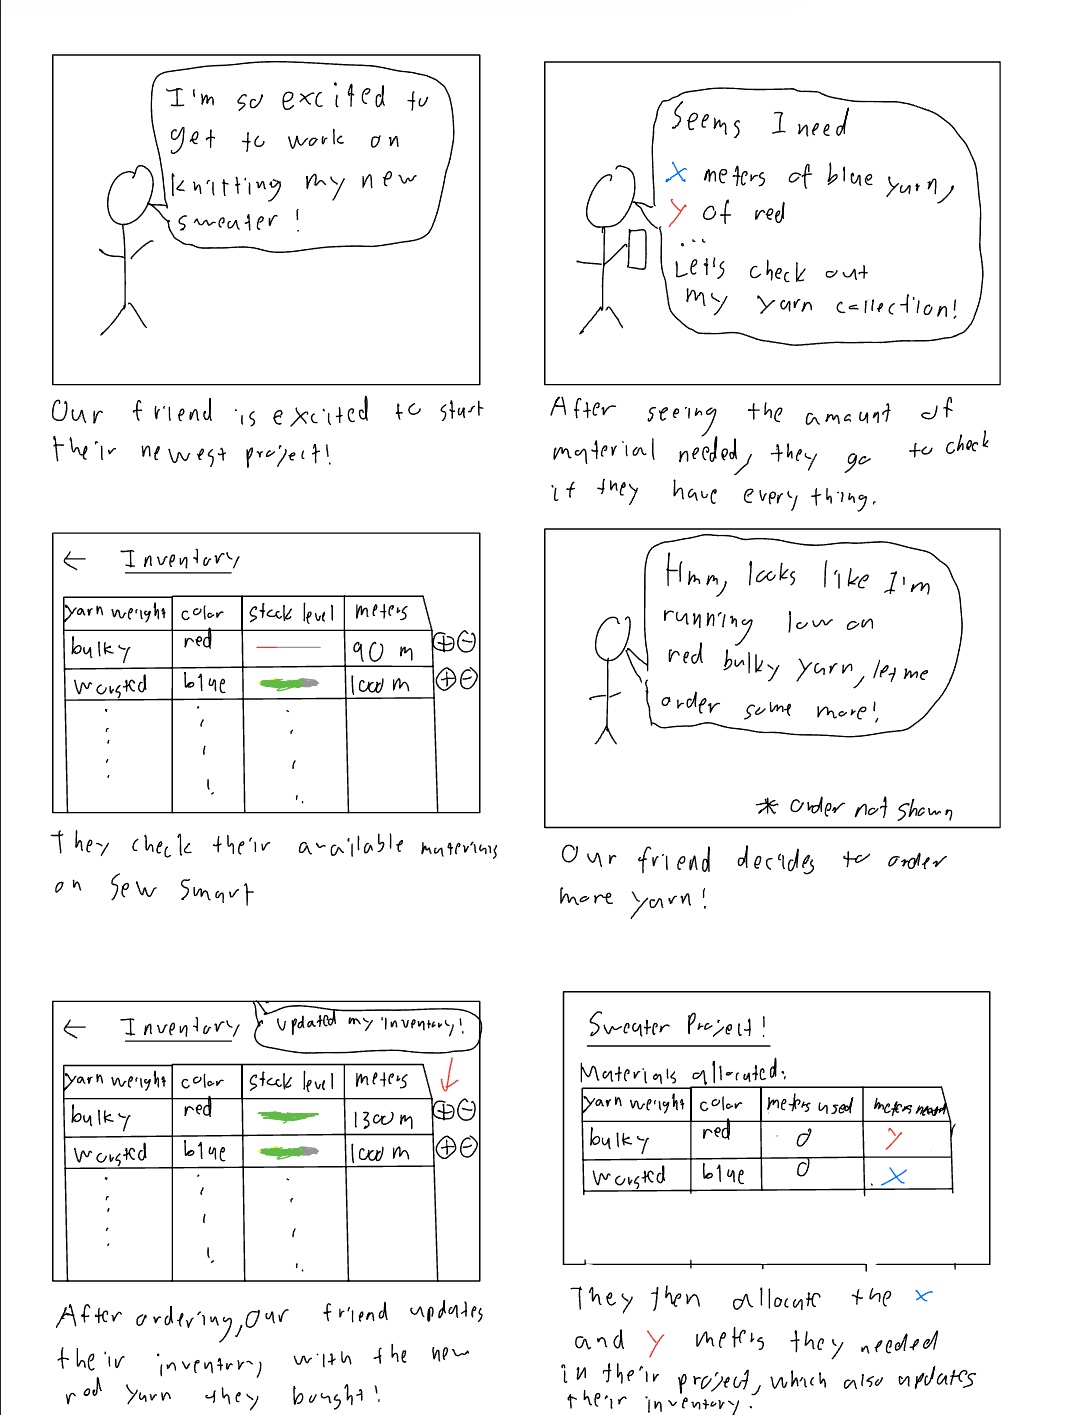 I'm so excited to
get to work on
knitting my new
sweater!
Our friend is excited to start
their newest project!
Seems I need
x meters of blue yarn,
y of red
...
Let's check out
my yarn collection!
After seeing the amount of
material needed, they go to check
if they have everything.
← Inventory
yarn weight color stock level meters
bulky red 90 m + -
worsted blue 1000 m + -
They check their available materials
on Sew Smart
Hmm, looks like I'm
running low on
red bulky yarn, let me
order some more!
* order not shown
Our friend decides to order
more yarn!
← Inventory
updated my inventory!
yarn weight color stock level meters
bulky red 1300 m + -
worsted blue 1000 m + -
After ordering, our friend updates
their inventory with the new
red yarn they bought!
Sweater Project!
Materials allocated:
yarn weight color meters used meters
bulky red 0 y
worsted blue 0 x
They then allocate the x
and y meters they needed
in their project, which also updates
their inventory.